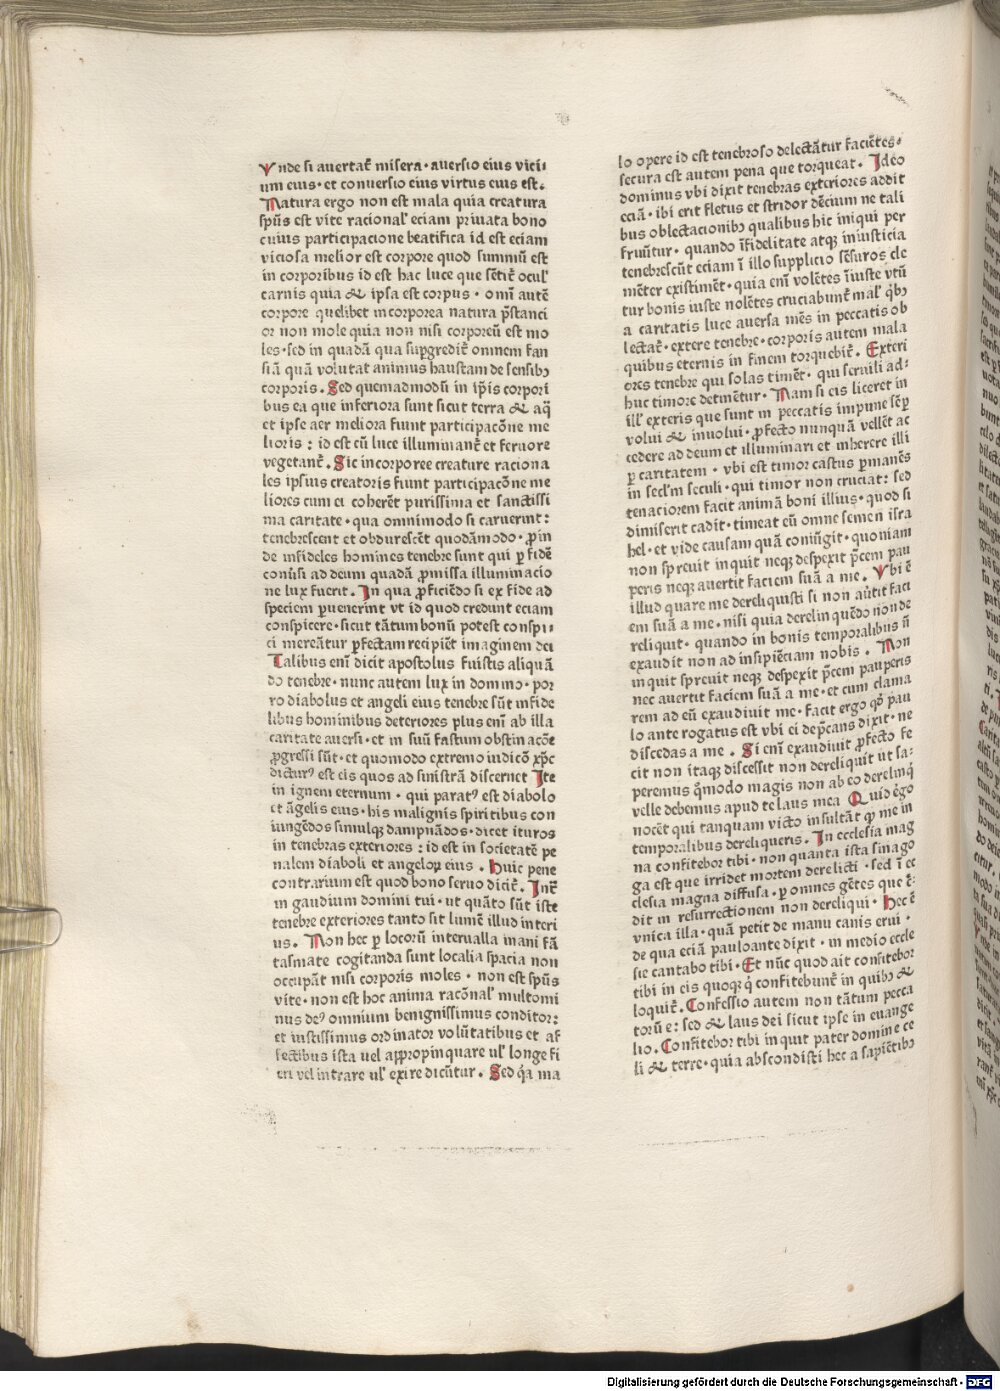 Vnde si auertat̄ misera · auersio eius vici⸗
um eius · et conuersio eius virtus eius est.
Natura ergo non est mala quia creatura
spūs est vite racional' eciam priuata bono
cuius participacione beatifica id est eciam
viciosa melior est corpore quod summū est
in corporibus id est hac luce que sētit̄ ocul'
carnis quia & ipsa est corpus · omī autē
corpore quelibet incorporea natura p̄stanci
or non mole quia non nisi corporeū est mo
les · sed in quadā qua sup̱gredit̄ omnem fan
siā quā volutat animus haustam de sensibꝫ
corporis. Sed quemadmodū in ip̄is corpori
bus ea que inferiora sunt sicut terra & aq̄
et ipse aer meliora fiunt participacōne me
lioris : id est cū luce illuminant̄ et feruore
vegetant̄. Sic incorporee creature raciona
les ipsius creatoris fiunt participacōne me
liores cum ei coherēt purissima et sanctissi
ma caritate · qua omnimodo si caruerint :
tenebrescent et obdurescēt quodāmodo · ꝓin
de infideles homines tenebre sunt qui ꝑ fidē
conūsi ad deum quadā ꝓmissa illuminacio
ne lux fuerit. In qua ꝓficiēdo si ex fide ad
speciem ꝑuenerint vt id quod credunt eciam
conspicere · sicut tātum bonū potest conspi⸗
ci mereātur ꝑfectam recipiēt imaginem dei
Talibus enī dicit apostolus Fuistis aliquā
do tenebre · nunc autem lux in domino · por
ro diabolus et angeli eius tenebre sūt infide
libus hominibus deteriores plus enī ab illa
caritate auersi · et in suū fastum obstinacōe
ꝓgressi sūt · et quomodo extremo iudicō xp̄c
dictur⁹ est eis quos ad sinistrā discernet Ite
in ignem eternum · qui parat⁹ est diabolo
et āgelis eius · his malignis spiritibus con
iungēdos simulqꝫ dampnādos · dicet ituros
in tenebras exteriores : id est in societatē pe
nalem diaboli et angeloꝝ eius. Huic pene
contrarium est quod bono seruo dicit̄. Int̄
in gaudium domini tui · ut quāto sūt iste
tenebre exteriores tanto sit lumē illud interi
us. Non hec ꝑ locorū interualla inani fā
tasmate cogitanda sunt localia spacia non
occupāt nisi corporis moles · non est spūs
vite · non est hoc anima racōnal' multomi
nus de⁹ omnium benignissimus conditor :
et iustissimus ordinator volūtatibus et af
fectibus ista uel appropinquare ul' longe fi
eri vel intrare ul' exire dicūtur. Sed q̇a ma
lo opere id est tenebroso delectātur faciētes⸗
secura est autem pena que torqueat. Ideo
dominus vbi dixit tenebras exteriores addit
eciā · ibi erit fletus et stridor dēcium ne tali
bus oblectacionibꝫ qualibus hic iniqui per
fruūtur · quando īfidelitate atqꝫ iniusticia
tenebrescūt eciam ī illo supplicio sēsuros cle
mēter existimēt · quia enī volētes īiuste vtū
tur bonis iuste nolētes cruciabunt̄ mal' q̇bꝫ
a caritatis luce auersa mēs in peccatis ob
lectat̄ · extere tenebre · corporis autem mala
quibus eternis in finem torquebit̄. Exteri
ores tenebre qui solas timēt · qui seruili ad⸗
huc timore detinētur. Nam si eis liceret in
ill' exteris que sunt in peccatis impune sēꝑ
volui & inuolui · ꝓfecto nunquā vellēt ac
cedere ad deum et illuminari et inherere illi
ꝑ caritatem · vbi est timor castus ꝑmanēs
in secl'm seculi · qui timor non cruciat : sed
tenaciorem facit animā boni illius · quod si
dimiserit cadit · timeat eū omne semen isra
hel · et vide causam quā coniūgit · quoniam
non spreuit inquit neqꝫ despexit p̄cem pau
peris neqꝫ auertit faciem suā a me. Vbi ē
illud quare me dereliquisti si non aūtit faci
em suā a me · nisi quia derelinquēdo non de
reliquit · quando in bonis temporalibus n̄
exaudit non ad insipiēciam nobis. Non
inquit spreuit neqꝫ despexit p̄cem pauperis
nec auertit faciem suā a me · et cum clama
rem ad eū exaudiuit me · facit ergo qd̄ pau
lo ante rogatus est vbi ei dep̄cans dixit · ne
discedas a me. Si enī exaudiuit ꝓfecto fe
cit non itaqꝫ discessit non dereliquit ut sa⸗
peremus q̄modo magis non ab eo derelinq̇
velle debemus apud te laus mea Quid ego
nocēt qui tanquam victo insultāt ꝙ me in
temporalibus dereliqueris. In ecclesia mag
na confitebor tibi · non quanta ista sinago
ga est que irridet mortem derelicti · sed ī ec
clesia magna diffusa · ꝑ omnes gētes que c̄⸗
dit in resurrectionem non dereliqui. Hec ē
vnica illa · quā petit de manu canis erui ·
de qua eciā pauloante dixit · in medio eccle
sie cantabo tibi · Et nūc quod ait confitebor
tibi in eis quoqꝫ q̇ confitebunt̄ in quibꝫ &
loquit̄. Confessio autem non tātum pecca
torū e : sed & laus dei sicut ipse in euange
lio. Confitebor tibi inquit pater domine ce
li & terre · quia abscondisti hec a sapiētibꝫ
Digitalisierung gefördert durch die Deutsche Forschungsgemeinschaft - DFG